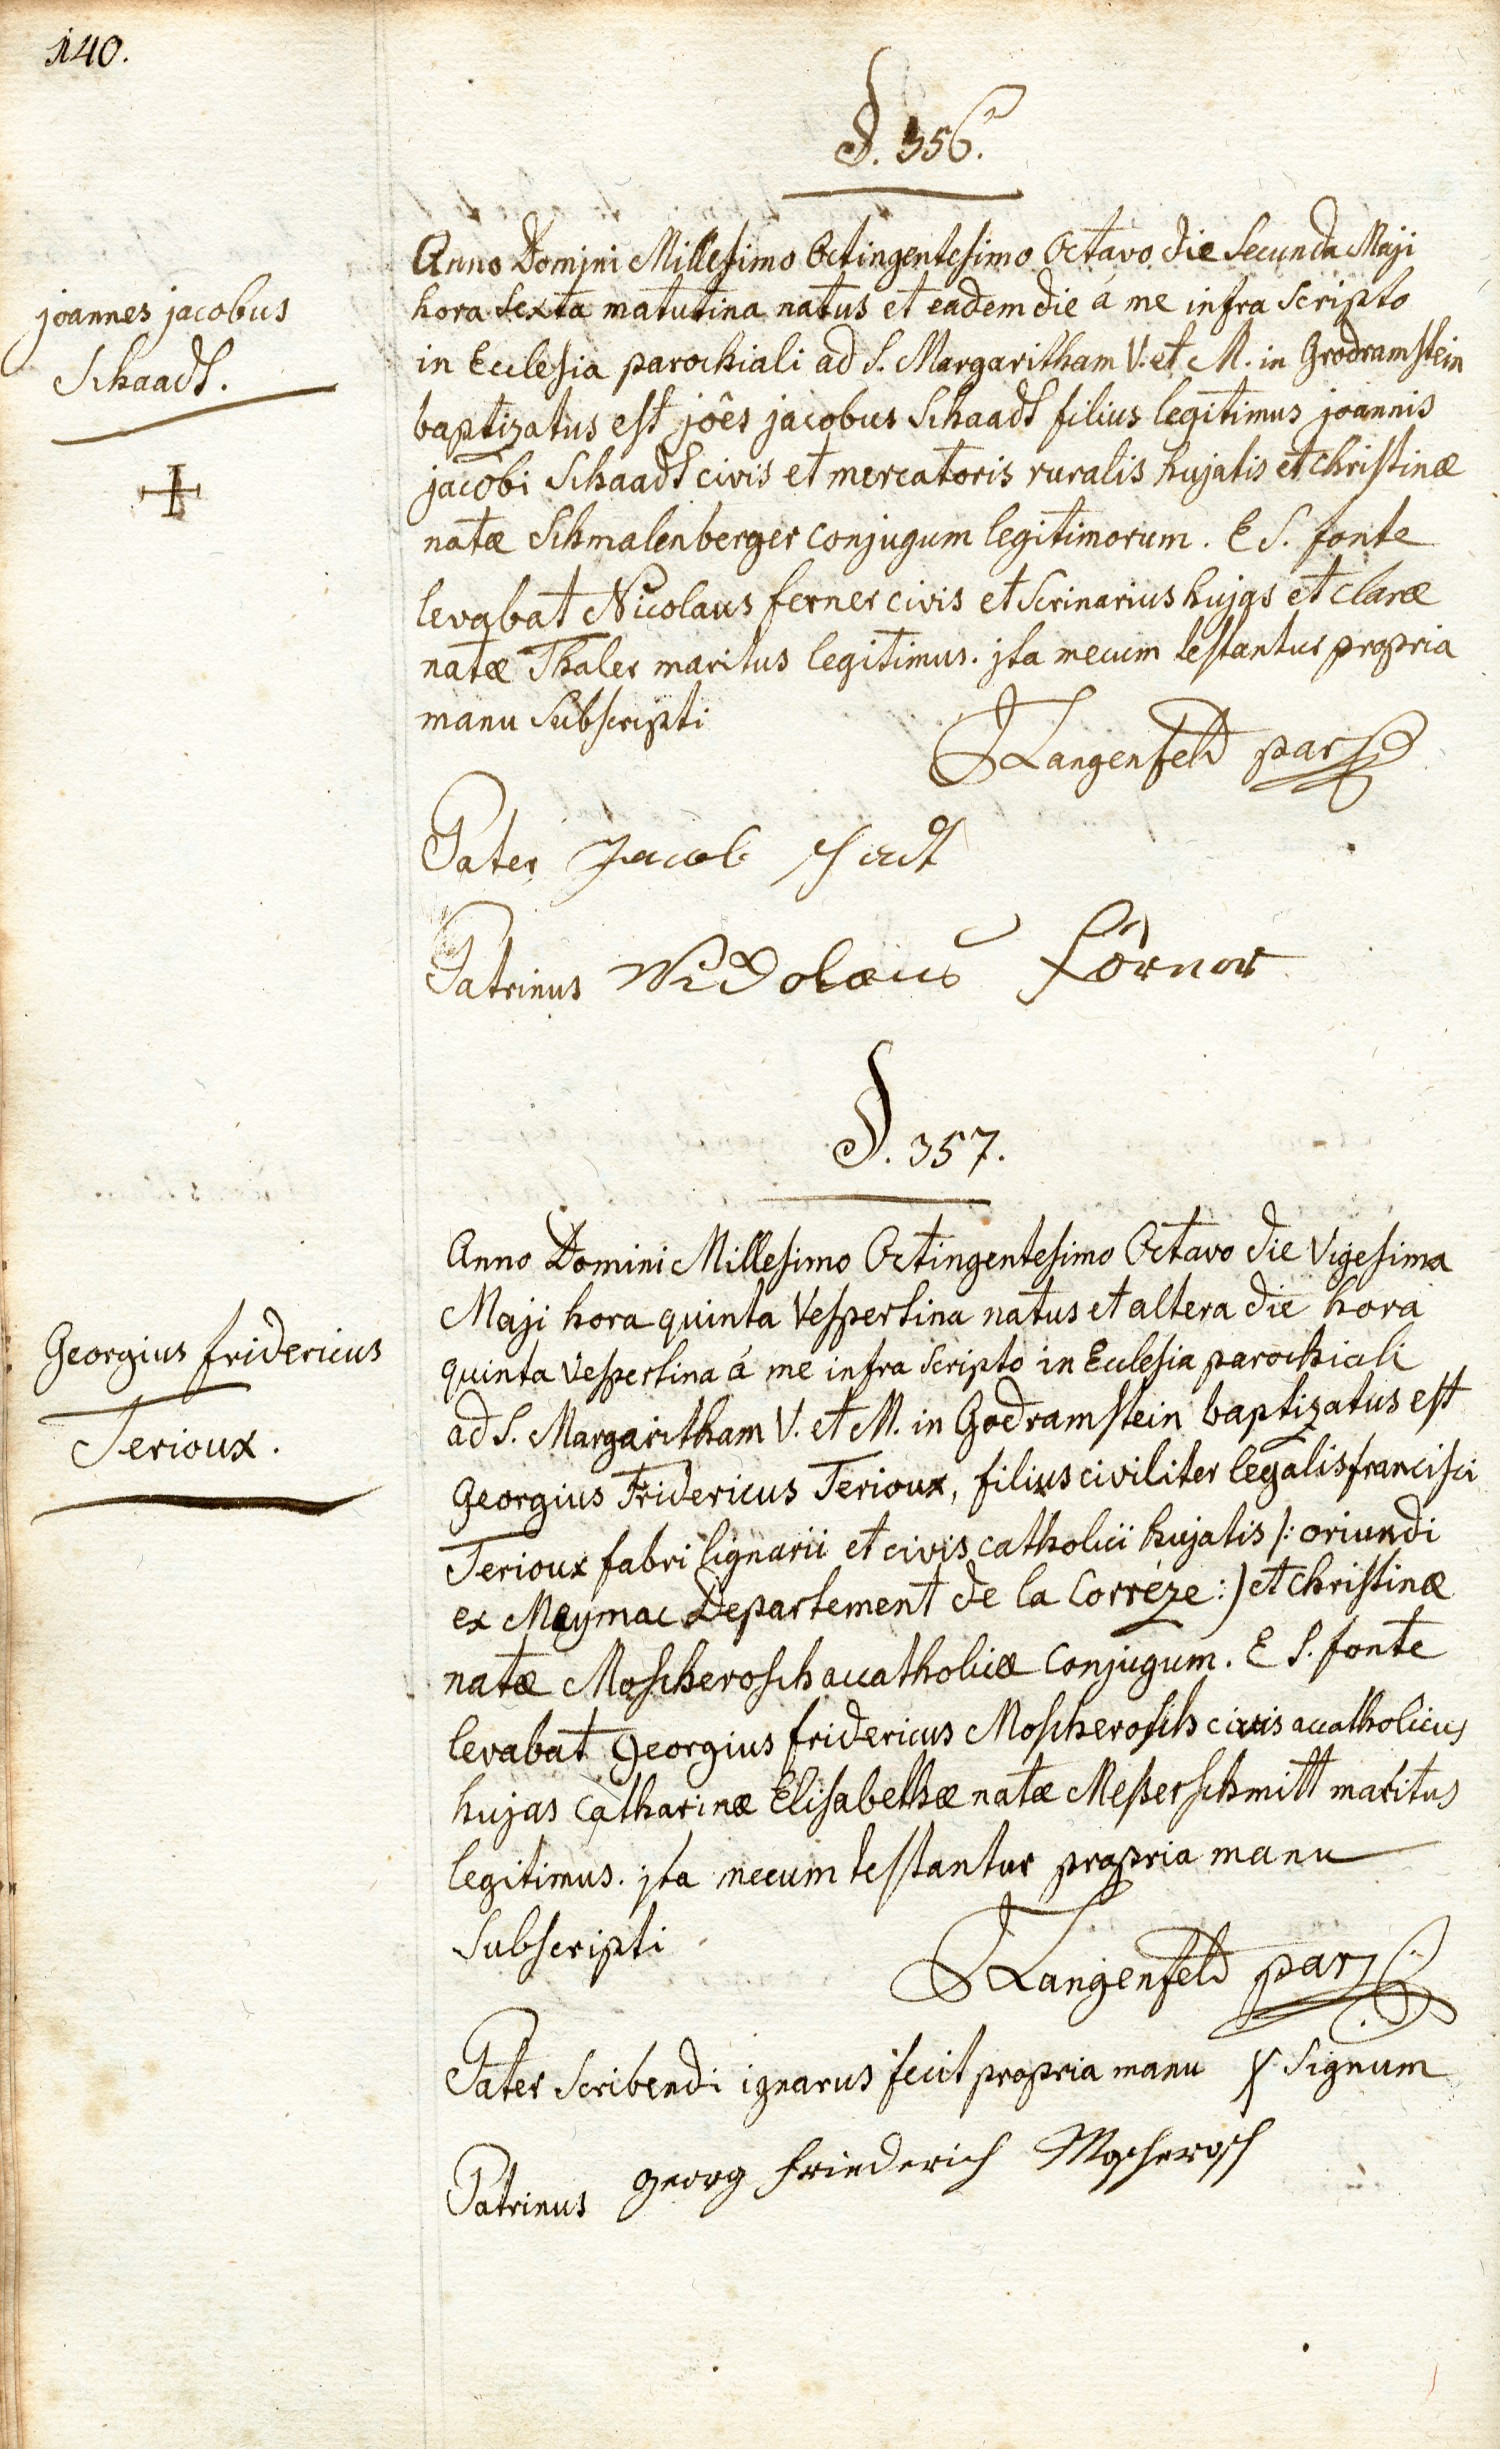 140.
§. 356.
joannes jacobus
Schaadt.
Anno Domini Millesimo Octingentesimo Octavo die Secunda Maji
hora Sexta matutina natus et eadem die á me infra Scripto
in Ecclesia parochiali ad S. Margaritham V. et M. in Grodramstein
baptizatus est jôes jacobus Schaadt filius legitimus joannis
jacobi Schaadt civis et mercatoris ruralis hujatis et Christinæ
natæ Schmalenberger conjugum legitimorum. E S. fonte
levabat Nicolaus ferner civis et Scrinarius hujas et Claræ
natæ Thaler maritus legitimus. jta mecum testantur propria
manu Subscripti
Langenfeld
Pater Jacob
Patrinus Nicolaus
§. 357.
Georgius fridericus
Terioux.
Anno Domini Millesimo Octingentesimo Octavo die Vigesima
Maji hora quinta Vespertina natus et altera die hora
quinta Vespertina á me infra Scripto in Ecclesia parochiali
ad S. Margaritham V. et M. in Godramstein baptizatus est
Georgius Fridericus Terioux, filius civiliter legalis francisci
Terioux fabri lignarii et civis catholici hujatis /: oriundi
ex Meymac Departement de la Corréze :) et Christinæ
natæ Moscherosch accatholicæ conjugum. E S. fonte
levabat Georgius fridericus Moscherosch civis accatholicus
hujas Catharinæ Elisabethæ natæ Meßerschmitt maritus
legitimus. jta mecum testantur propria manu
Subscripti
Langenfeld
Pater Scribendi ignarus fecit propria manu Signum
Patrinus georg friederich Moscherosch